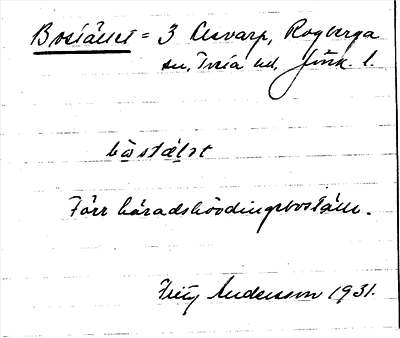 Bostället = 3 Lesvarp, Rogberga
sn, Tveta hd, Jönk. l.
bo̤stä̤lət
Förr häradshövdingeboställe.
Andersson 1931.